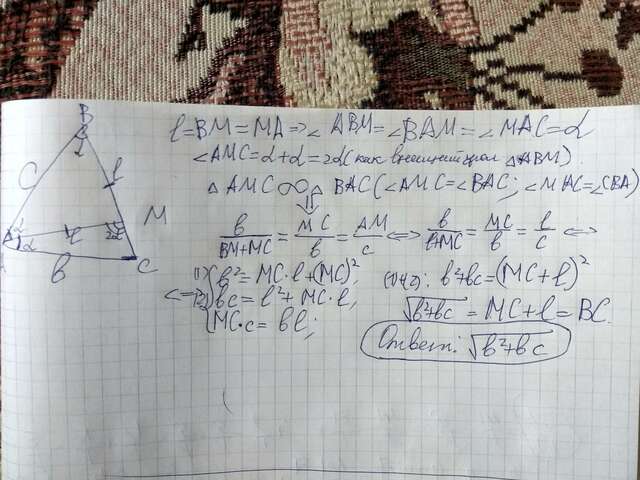 B
L
C
l
M
A
L
l
2L
b
C
l = BM = MA => ∠ ABM = ∠BAM = ∠MAC = α
∠AMC = α + α = 2α (как внешний угол △ABM).
△ AMC ∾ △ BAC (∠AMC = ∠BAC; ∠MAC = ∠CBA)
⇓
b/(BM+MC) = MC/b = AM/c <=> b/(l+MC) = MC/b = l/c <=>
<=> (1) { b² = MC·l + (MC)²; (1)+(2): b² + bc = (MC + l)²
(2) { bc = l² + MC·l; √(b²+bc) = MC + l = BC.
{ MC·c = bl;
Ответ: √(b²+bc)